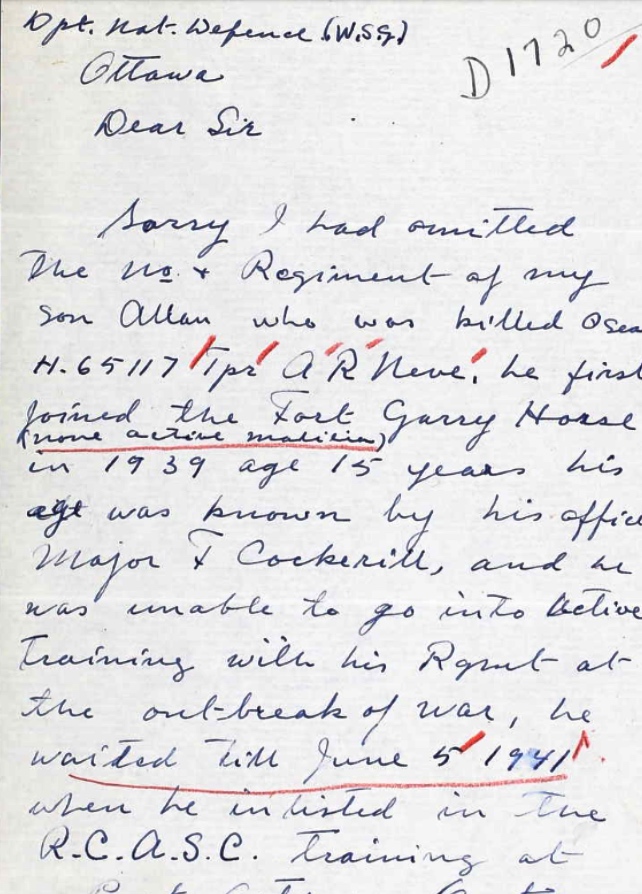 Dpt. Nat. Defence (W.S.G.)
D 1720
Ottawa
Dear Sir
Sorry I had omitted
the No. + Regiment of my
son Allan who was killed Osea
H.65117 Tpr A R Neve, he first
joined the Fort Garry Horse
(none active malicia)
in 1939 age 15 years his
age was known by his office
Major F Cockerill, and he
was unable to go into active
training with his Rgmt at
the out-break of war, he
waited till June 5 1941
when he inlisted in the
R.C.A.S.C. training at